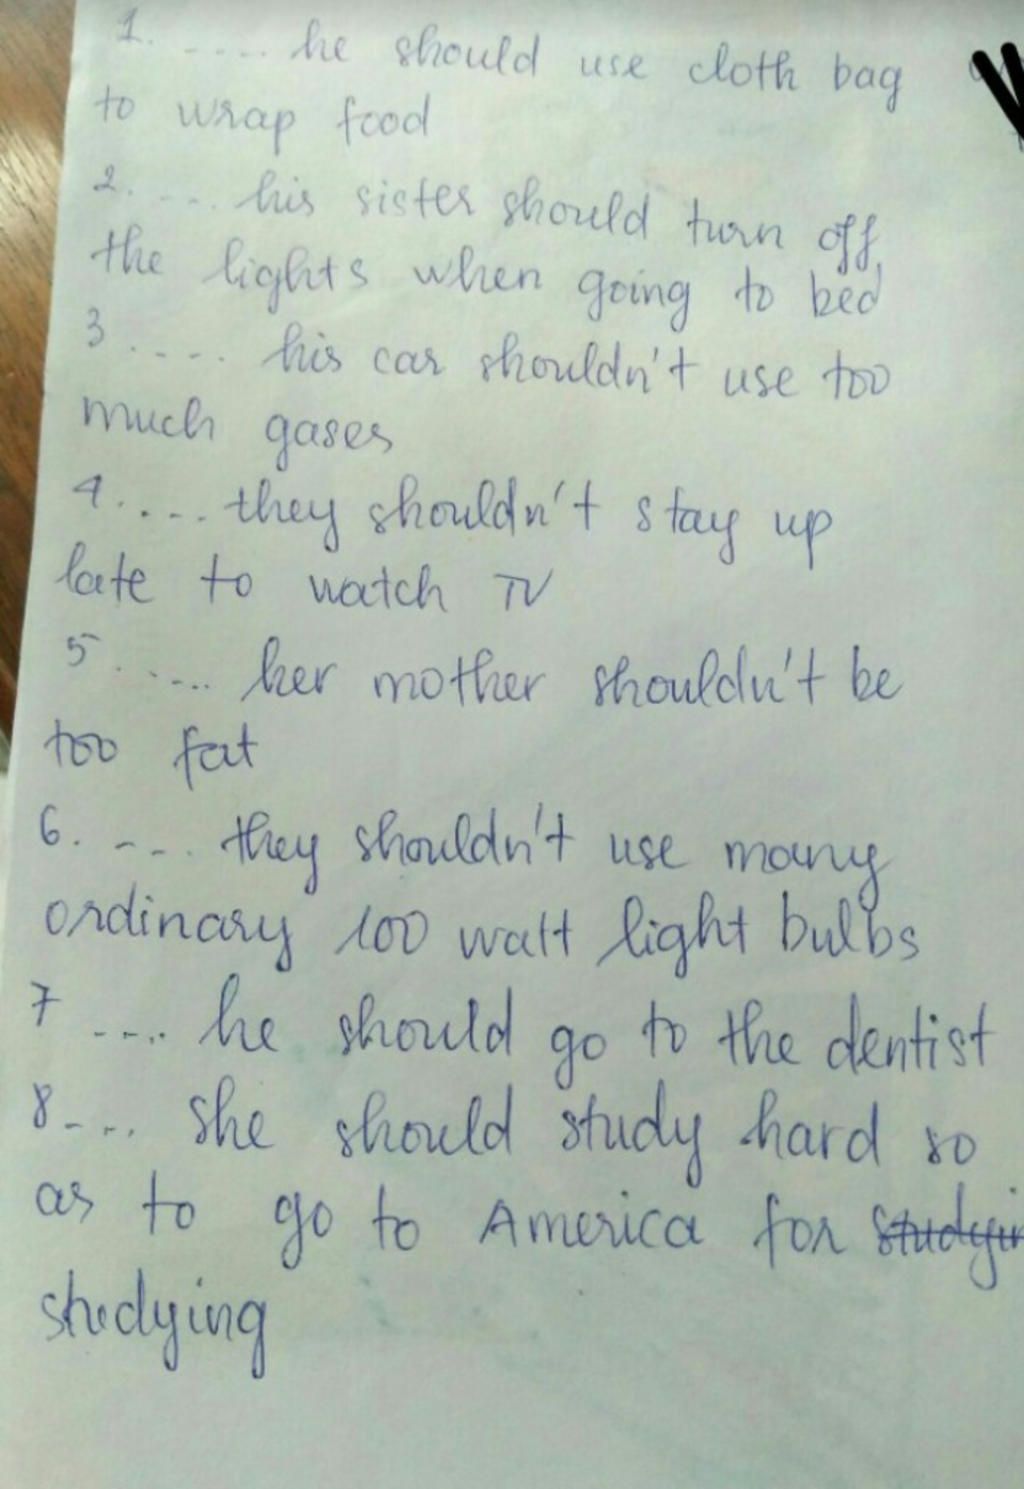 1. .... he should use cloth bag
to wrap food
2. .... his sister should turn off
the lights when going to bed
3 .... his car shouldn't use too
much gases
4. .... they shouldn't stay up
late to watch TV
5. .... her mother shouldn't be
too fat
6. .... they shouldn't use many
ordinary 100 watt light bulbs
7 .... he should go to the dentist
8 .... she should study hard so
as to go to America for
studying